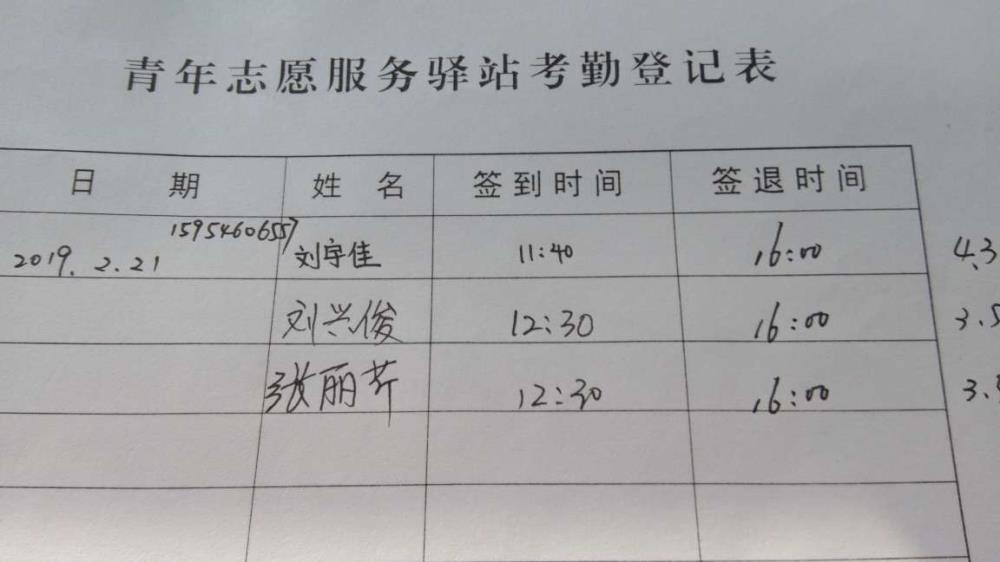 青年志愿服务驿站考勤登记表
日 期 姓 名 签到时间 签退时间
15954606557
2019.2.21 刘宇佳 11:40 16:00 4.3
刘兴俊 12:30 16:00 3.5
张丽芹 12:30 16:00 3.